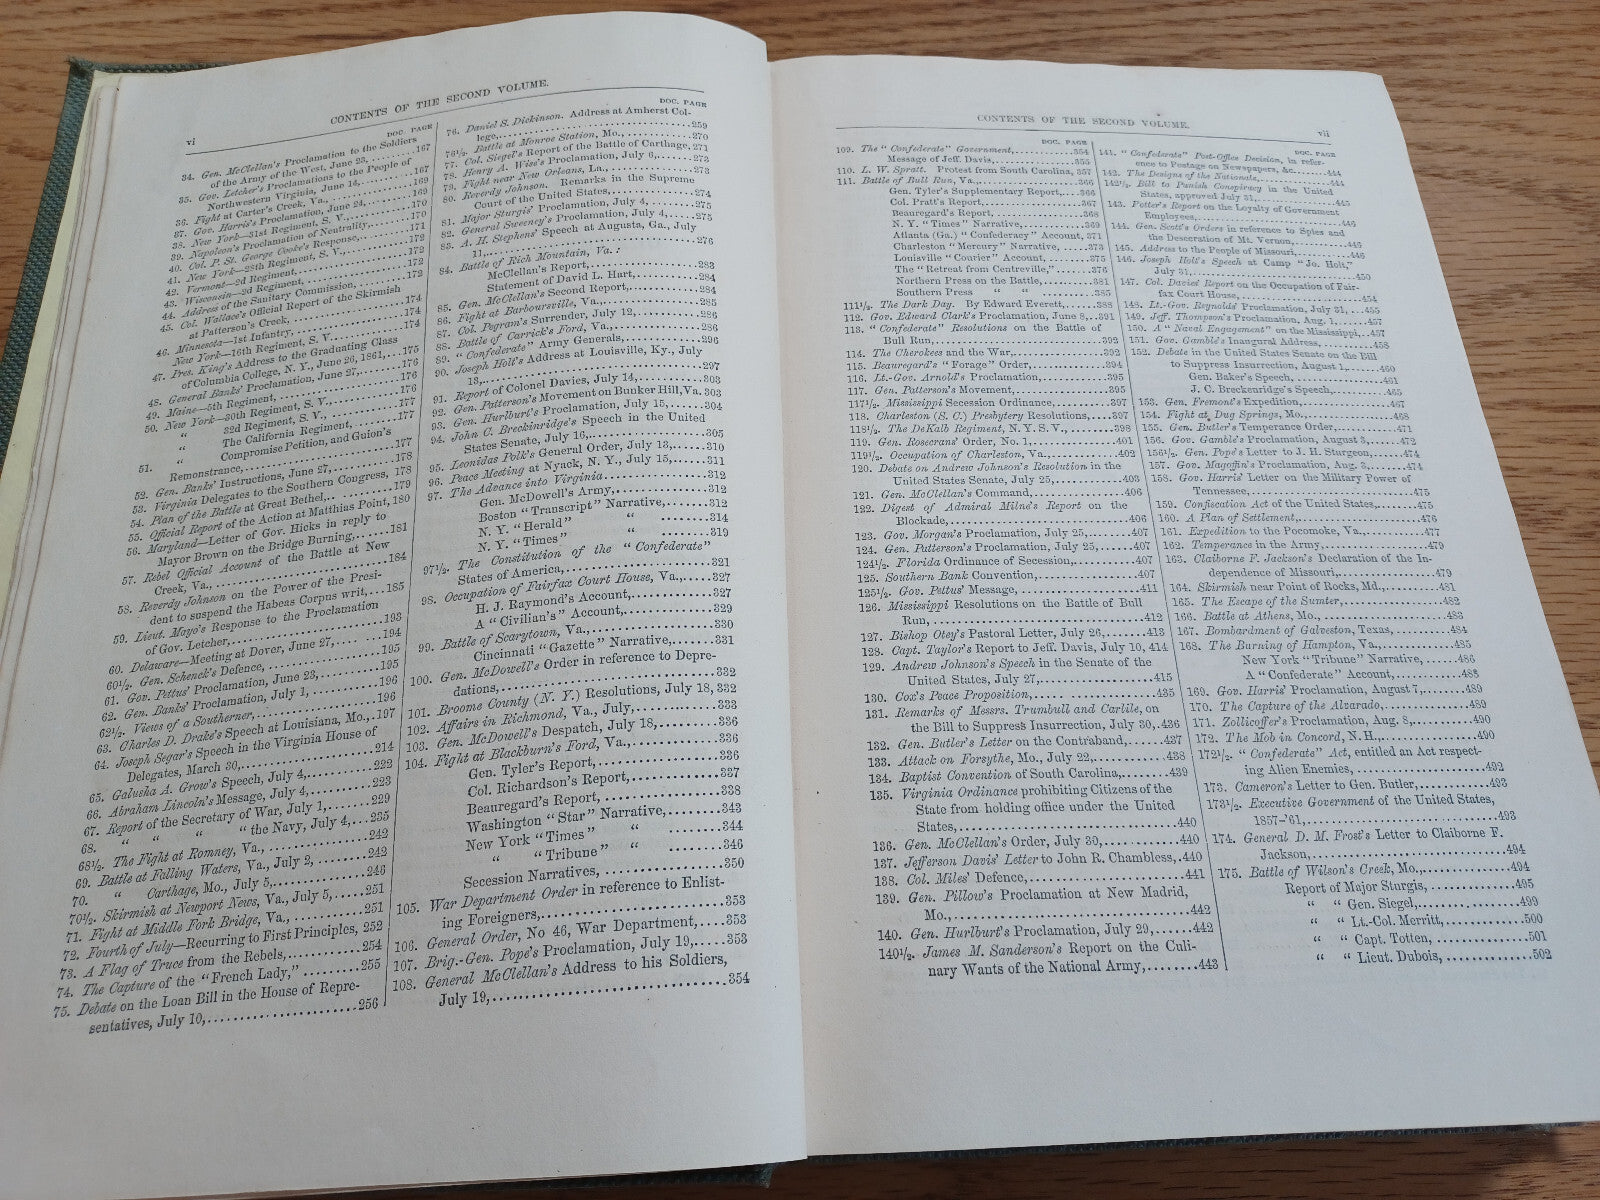 vi
CONTENTS OF THE SECOND VOLUME.
DOC. PAGE
34. Gen. McClellan's Proclamation to the Soldiers
of the Army of the West, June 23, 167
35. Gov. Letcher's Proclamations to the People of
Northwestern Virginia, June 14, 167
36. Fight at Carter's Creek, Va., 169
37. Gov. Harris's Proclamation, June 24, 169
38. New York—31st Regiment, S. V., 170
39. Napoleon's Proclamation of Neutrality, 170
40. Col. P. St. George Cooke's Response, 171
41. New York—28th Regiment, S. V., 172
42. Vermont—2d Regiment, 172
43. Wisconsin—2d Regiment, 172
44. Address of the Sanitary Commission, 172
45. Col. Wallace's Official Report of the Skirmish
at Patterson's Creek, 174
46. Minnesota—1st Infantry, 174
New York—16th Regiment, S. V., 174
47. Pres. King's Address to the Graduating Class
of Columbia College, N. Y., June 26, 1861, 175
48. General Banks' Proclamation, June 27, 176
49. Maine—5th Regiment, 176
50. New York—30th Regiment, S. V., 176
" 32d Regiment, S. V., 177
" The California Regiment, 177
51. " Compromise Petition, and Guion's
Remonstrance, 177
52. Gen. Banks' Instructions, June 27, 178
53. Virginia Delegates to the Southern Congress, 178
54. Plan of the Battle at Great Bethel, 179
55. Official Report of the Action at Matthias Point, 180
56. Maryland—Letter of Gov. Hicks in reply to
Mayor Brown on the Bridge Burning, 181
57. Rebel Official Account of the Battle at New
Creek, Va., 184
58. Reverdy Johnson on the Power of the Presi-
dent to suspend the Habeas Corpus writ, 185
59. Lieut. Mayo's Response to the Proclamation
of Gov. Letcher, 193
60. Delaware—Meeting at Dover, June 27, 194
60½. Gen. Schenck's Defence, 195
61. Gov. Pettus' Proclamation, June 23, 195
62. Gen. Banks' Proclamation, July 1, 196
62½. Views of a Southerner, 196
63. Charles D. Drake's Speech at Louisiana, Mo., 197
64. Joseph Segar's Speech in the Virginia House of
Delegates, March 30, 214
65. Galusha A. Grow's Speech, July 4, 222
66. Abraham Lincoln's Message, July 4, 223
67. Report of the Secretary of War, July 1, 229
68. " " " " the Navy, July 4, 235
68½. The Fight at Romney, Va., 242
69. Battle at Falling Waters, Va., July 2, 242
70. " Carthage, Mo., July 5, 246
70½. Skirmish at Newport News, Va., July 5, 251
71. Fight at Middle Fork Bridge, Va., 251
72. Fourth of July—Recurring to First Principles, 252
73. A Flag of Truce from the Rebels, 254
74. The Capture of the "French Lady," 255
75. Debate on the Loan Bill in the House of Repre-
sentatives, July 10, 256
DOC. PAGE
76. Daniel S. Dickinson. Address at Amherst Col-
lege, 259
76½. Battle at Monroe Station, Mo., 270
77. Col. Siegel's Report of the Battle of Carthage, 271
78. Henry A. Wise's Proclamation, July 6, 273
79. Fight near New Orleans, La., 273
80. Reverdy Johnson. Remarks in the Supreme
Court of the United States, 274
81. Major Sturgis' Proclamation, July 4, 275
82. General Sweeney's Proclamation, July 4, 275
83. A. H. Stephens' Speech at Augusta, Ga., July
11, 276
84. Battle of Rich Mountain, Va.:
McClellan's Report, 283
Statement of David L. Hart, 284
85. Gen. McClellan's Second Report, 284
86. Fight at Barboursville, Va., 285
87. Col. Pegram's Surrender, July 12, 286
88. Battle of Carrick's Ford, Va., 286
89. "Confederate" Army Generals, 296
90. Joseph Holt's Address at Louisville, Ky., July
13, 297
91. Report of Colonel Davies, July 14, 303
92. Gen. Patterson's Movement on Bunker Hill, Va. 303
93. Gen. Hurlburt's Proclamation, July 15, 304
94. John C. Breckinridge's Speech in the United
States Senate, July 16, 305
95. Leonidas Polk's General Order, July 13, 310
96. Peace Meeting at Nyack, N. Y., July 15, 311
97. The Advance into Virginia 312
Gen. McDowell's Army, 312
Boston "Transcript" Narrative, 312
N. Y. "Herald" " 314
N. Y. "Times" " 319
97½. The Constitution of the "Confederate"
States of America, 321
98. Occupation of Fairfax Court House, Va., 327
H. J. Raymond's Account, 327
A "Civilian's" Account, 329
99. Battle of Scarytown, Va., 330
Cincinnati "Gazette" Narrative, 331
100. Gen. McDowell's Order in reference to Depre-
dations, 332
101. Broome County (N. Y.) Resolutions, July 18, 332
102. Affairs in Richmond, Va., July, 333
103. Gen. McDowell's Despatch, July 18, 336
104. Fight at Blackburn's Ford, Va., 336
Gen. Tyler's Report, 336
Col. Richardson's Report, 337
Beauregard's Report, 338
Washington "Star" Narrative, 343
New York "Times" " 344
" "Tribune" " 346
Secession Narratives, 350
105. War Department Order in reference to Enlist-
ing Foreigners, 353
106. General Order, No 46, War Department, 353
107. Brig.-Gen. Pope's Proclamation, July 19, 353
108. General McClellan's Address to his Soldiers,
July 19, 354
CONTENTS OF THE SECOND VOLUME.
vii
DOC. PAGE
109. The "Confederate" Government, 354
Message of Jeff. Davis, 355
110. L. W. Spratt. Protest from South Carolina, 357
111. Battle of Bull Run, Va., 366
Gen. Tyler's Supplementary Report, 366
Col. Pratt's Report, 367
Beauregard's Report, 368
N. Y. "Times" Narrative, 369
Atlanta (Ga.) "Confederacy" Account, 371
Charleston "Mercury" Narrative, 373
Louisville "Courier" Account, 375
The "Retreat from Centreville," 376
Northern Press on the Battle, 381
Southern Press " " 385
111½. The Dark Day. By Edward Everett, 388
112. Gov. Edward Clark's Proclamation, June 8, 391
113. "Confederate" Resolutions on the Battle of
Bull Run, 392
114. The Cherokees and the War, 392
115. Beauregard's "Forage" Order, 394
116. Lt.-Gov. Arnold's Proclamation, 395
117. Gen. Patterson's Movement, 395
117½. Mississippi Secession Ordinance, 397
118. Charleston (S. C.) Presbytery Resolutions, 397
118½. The DeKalb Regiment, N. Y. S. V., 398
119. Gen. Rosecrans' Order, No. 1, 401
119½. Occupation of Charleston, Va., 402
120. Debate on Andrew Johnson's Resolution in the
United States Senate, July 25, 403
121. Gen. McClellan's Command, 406
122. Digest of Admiral Milne's Report on the
Blockade, 406
123. Gov. Morgan's Proclamation, July 25, 407
124. Gen. Patterson's Proclamation, July 25, 407
124½. Florida Ordinance of Secession, 407
125. Southern Bank Convention, 407
125½. Gov. Pettus' Message, 411
126. Mississippi Resolutions on the Battle of Bull
Run, 412
127. Bishop Otey's Pastoral Letter, July 26, 413
128. Capt. Taylor's Report to Jeff. Davis, July 10, 414
129. Andrew Johnson's Speech in the Senate of the
United States, July 27, 415
130. Cox's Peace Proposition, 435
131. Remarks of Messrs. Trumbull and Carlile, on
the Bill to Suppress Insurrection, July 30, 436
132. Gen. Butler's Letter on the Contraband, 437
133. Attack on Forsythe, Mo., July 22, 438
134. Baptist Convention of South Carolina, 439
135. Virginia Ordinance prohibiting Citizens of the
State from holding office under the United
States, 440
136. Gen. McClellan's Order, July 30, 440
137. Jefferson Davis' Letter to John R. Chambless, 440
138. Col. Miles' Defence, 441
139. Gen. Pillow's Proclamation at New Madrid,
Mo., 442
140. Gen. Hurlburt's Proclamation, July 29, 442
140½. James M. Sanderson's Report on the Culi-
nary Wants of the National Army, 443
DOC. PAGE
141. "Confederate" Post-Office Decision, in refer-
ence to Postage on Newspapers, &c. 444
142. The Designs of the Nationals, 444
142½. Bill to Punish Conspiracy in the United
States, approved July 31, 445
143. Potter's Report on the Loyalty of Government
Employees, 446
144. Gen. Scott's Orders in reference to Spies and
the Desecration of Mt. Vernon, 446
145. Address to the People of Missouri, 446
146. Joseph Holt's Speech at Camp "Jo. Holt,"
July 31, 450
147. Col. Davies' Report on the Occupation of Fair-
fax Court House, 454
148. Lt.-Gov. Reynolds' Proclamation, July 31, 455
149. Jeff. Thompson's Proclamation, Aug. 1, 457
150. A "Naval Engagement" on the Mississippi, 457
151. Gov. Gamble's Inaugural Address, 458
152. Debate in the United States Senate on the Bill
to Suppress Insurrection, August 1, 460
Gen. Baker's Speech, 461
J. C. Breckenridge's Speech, 465
153. Gen. Fremont's Expedition, 467
154. Fight at Dug Springs, Mo., 468
155. Gen. Butler's Temperance Order, 471
156. Gov. Gamble's Proclamation, August 3, 472
156½. Gen. Pope's Letter to J. H. Sturgeon, 474
157. Gov. Magoffin's Proclamation, Aug. 3, 474
158. Gov. Harris' Letter on the Military Power of
Tennessee, 475
159. Confiscation Act of the United States, 475
160. A Plan of Settlement, 476
161. Expedition to the Pocomoke, Va., 477
162. Temperance in the Army, 479
163. Claiborne F. Jackson's Declaration of the In-
dependence of Missouri, 479
164. Skirmish near Point of Rocks, Md., 481
165. The Escape of the Sumter, 482
166. Battle at Athens, Mo., 483
167. Bombardment of Galveston, Texas, 484
168. The Burning of Hampton, Va., 485
New York "Tribune" Narrative, 486
A "Confederate" Account, 488
169. Gov. Harris' Proclamation, August 7, 489
170. The Capture of the Alvarado, 489
171. Zollicoffer's Proclamation, Aug. 8, 490
172. The Mob in Concord, N. H., 490
172½. "Confederate" Act, entitled an Act respect-
ing Alien Enemies, 492
173. Cameron's Letter to Gen. Butler, 493
173½. Executive Government of the United States,
1857–'61, 493
174. General D. M. Frost's Letter to Claiborne F.
Jackson, 494
175. Battle of Wilson's Creek, Mo., 494
Report of Major Sturgis, 495
" " Gen. Siegel, 499
" " Lt.-Col. Merritt, 500
" " Capt. Totten, 501
" " Lieut. Dubois, 502